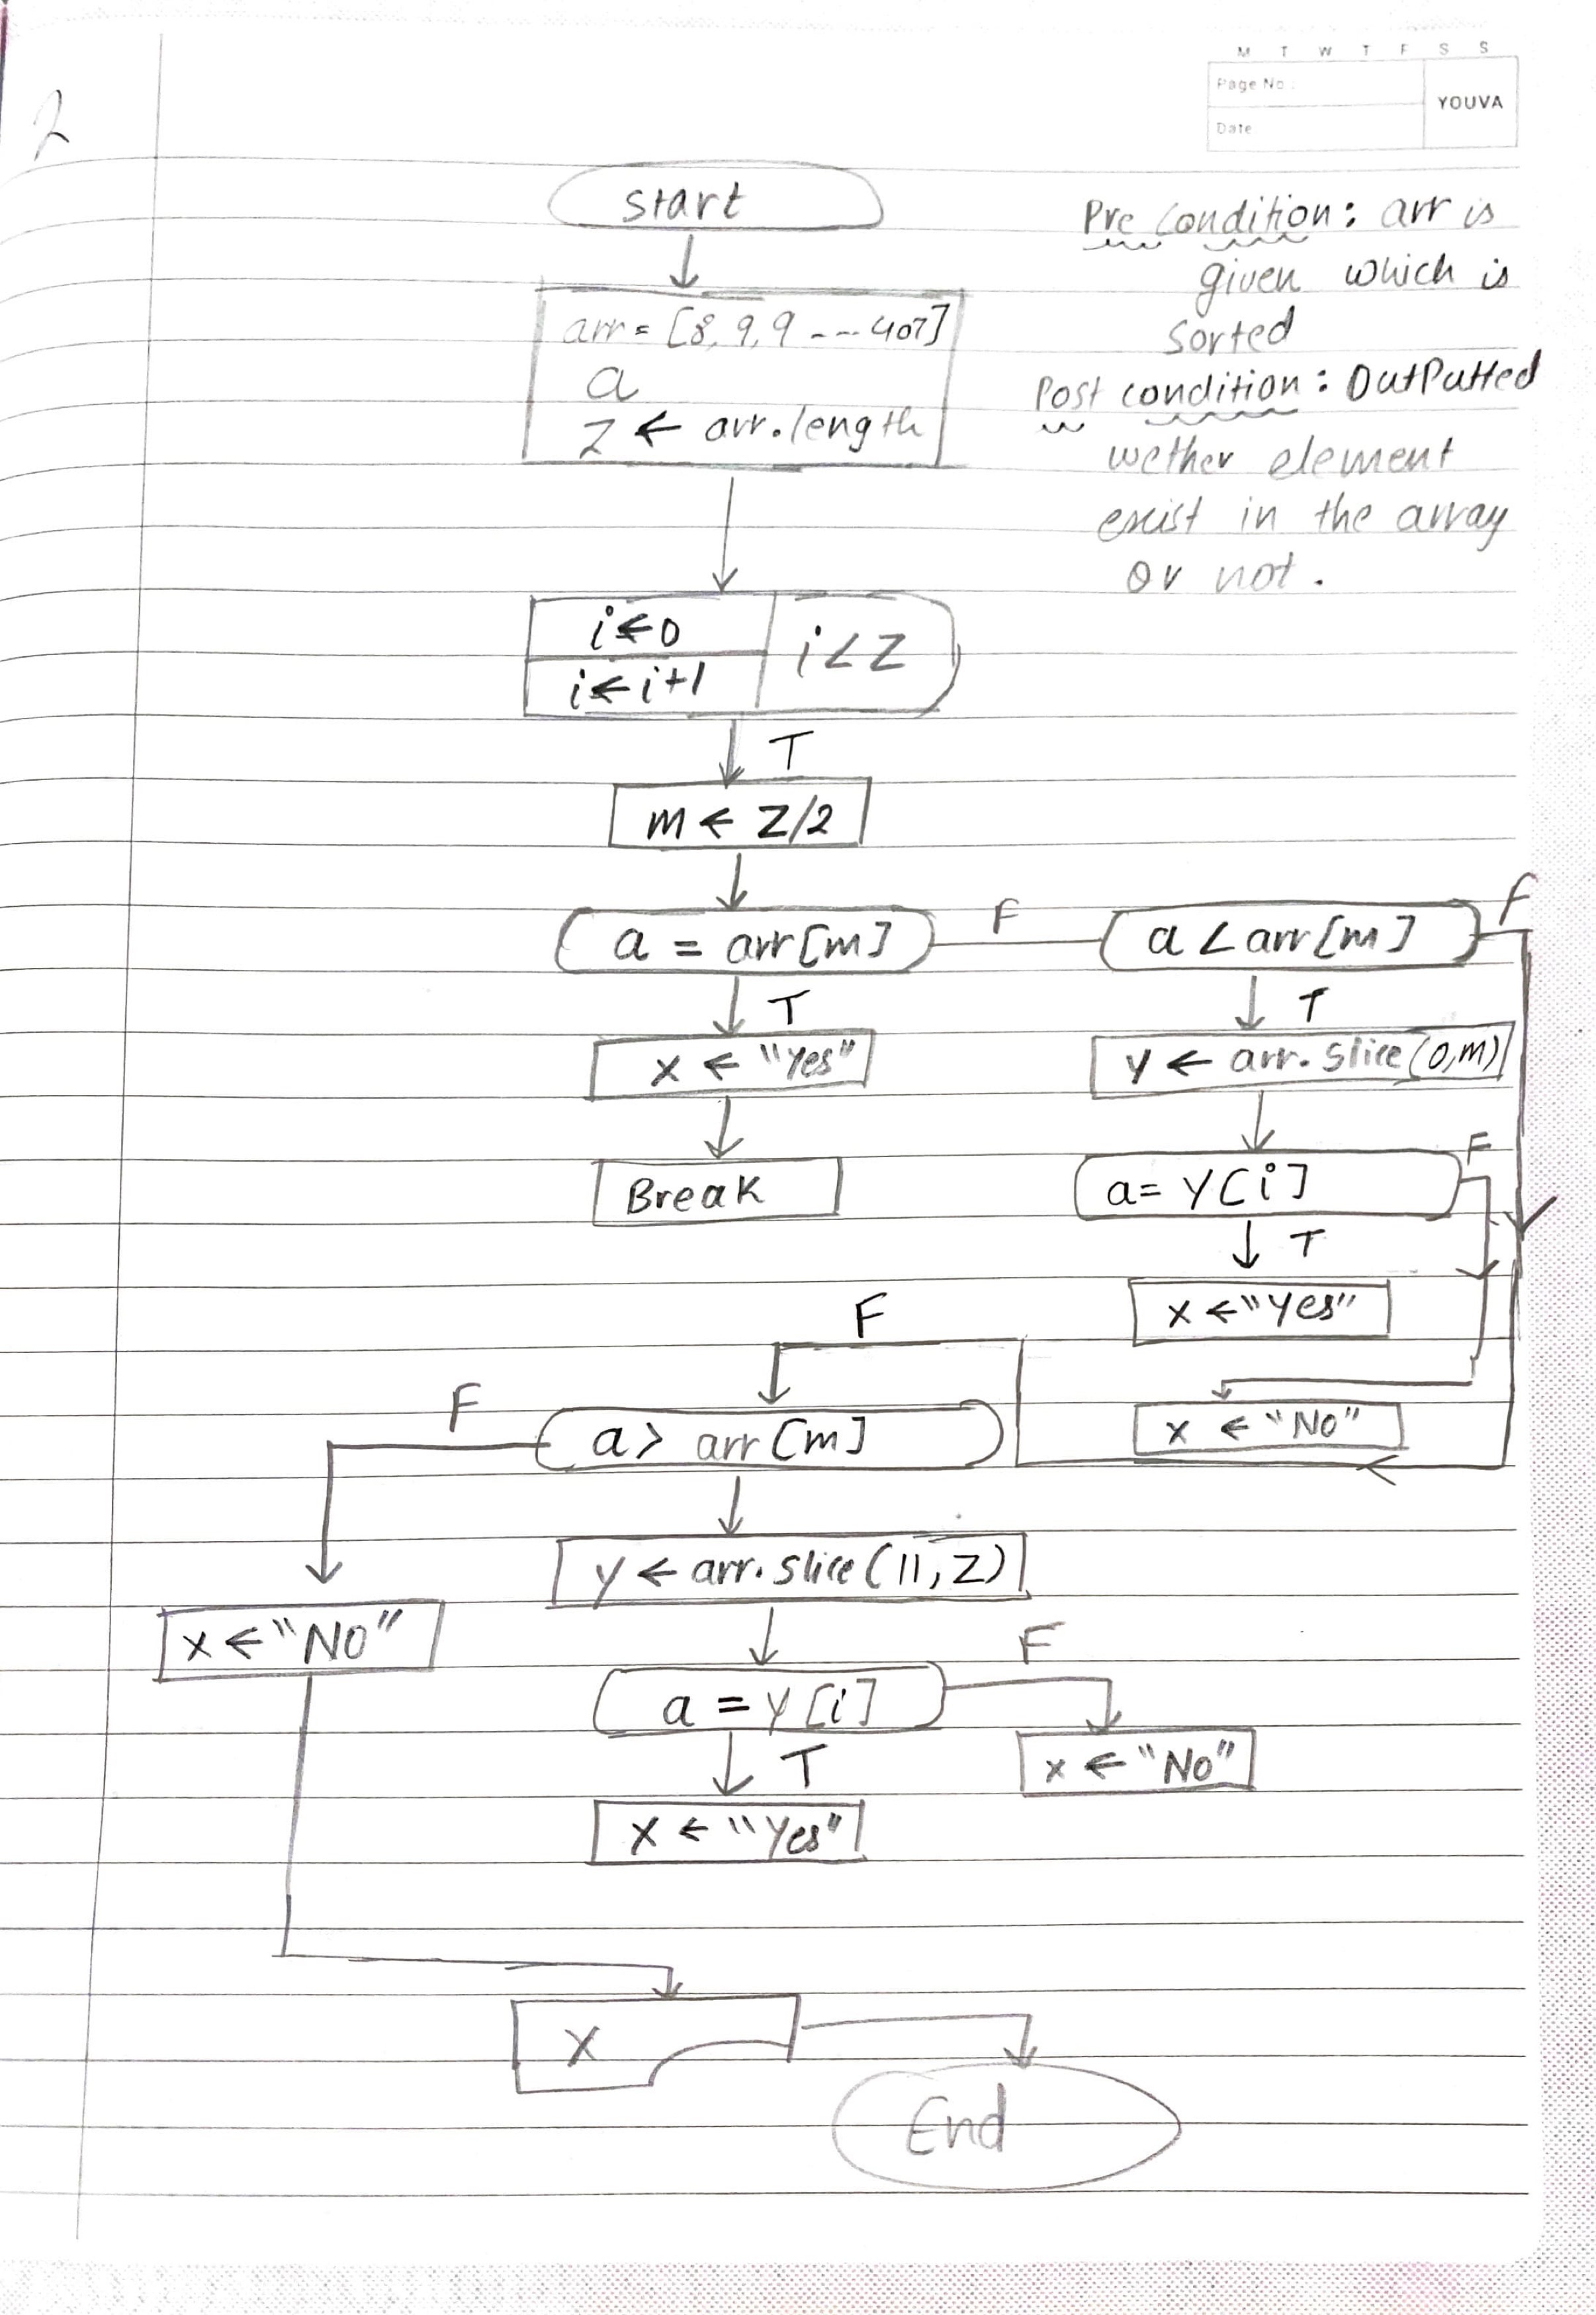 M T W T F S S
Page No :
YOUVA
Date
2
start
Pre Condition : arr is
given which is
sorted
Post condition : OutPutted
wether element
exist in the array
or not .
arr = [8, 9, 9 --- 407]
a
z ← arr.length
i ← 0
i ← i+1
i < z
T
m ← z/2
a = arr[m]
F
a < arr[m]
F
T
T
x ← "Yes"
y ← arr.slice(0,m)
Break
a = y[i]
F
T
x ← "Yes"
F
x ← "No"
F
a > arr[m]
y ← arr.slice(11, z)
x ← "No"
F
a = y[i]
T
x ← "No"
x ← "Yes"
x
End